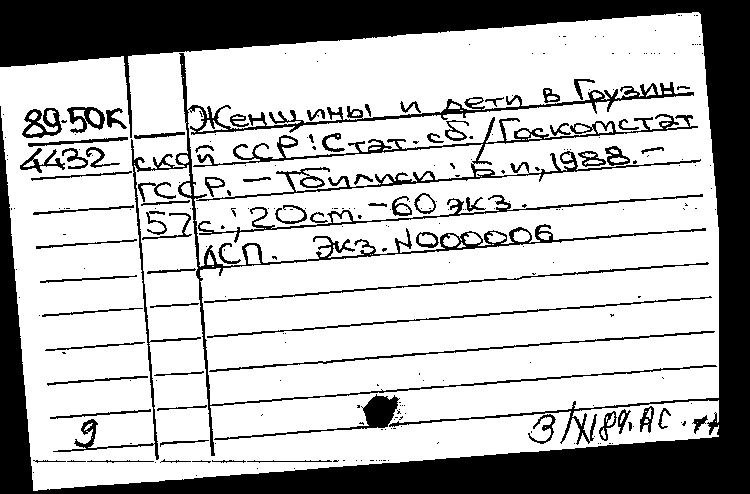 89-50к Женщины и дети в Грузин-
4432 ской ССР: Стат. сб. / Госкомстат
ГССР. — Тбилиси: Б.и., 1988. —
57 с.; 20 ст. — 60 экз.
ДСП. Экз. N000006
9
3/XI89. АС.